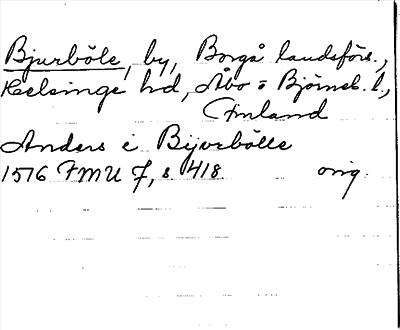 Bjurböle, by, Borgå landsförs.,
Helsinge hd, Åbo o Björneb. l.,
Finland
Anders i Bijurbölle
1516 FMU 7, s 418 orig.